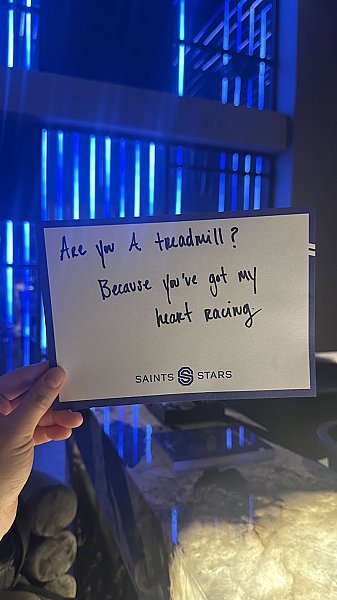 Are you A treadmill?
Because you've got my
heart racing
SAINTS S STARS